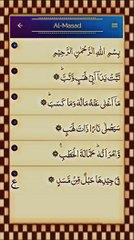 Al-Masad
بِسْمِ اللّٰهِ الرَّحْمٰنِ الرَّحِيْمِ
تَبَّتْ يَدَاۤ اَبِيْ لَهَبٍ وَّتَبَّ ؕ
مَاۤ اَغْنٰى عَنْهُ مَالُهٗ وَمَا كَسَبَ ؕ
سَيَصْلٰى نَارًا ذَاتَ لَهَبٍ
وَّامْرَاَتُهٗ ؕ حَمَّالَةَ الْحَطَبِ
فِيْ جِيْدِهَا حَبْلٌ مِّنْ مَّسَدٍ
ع